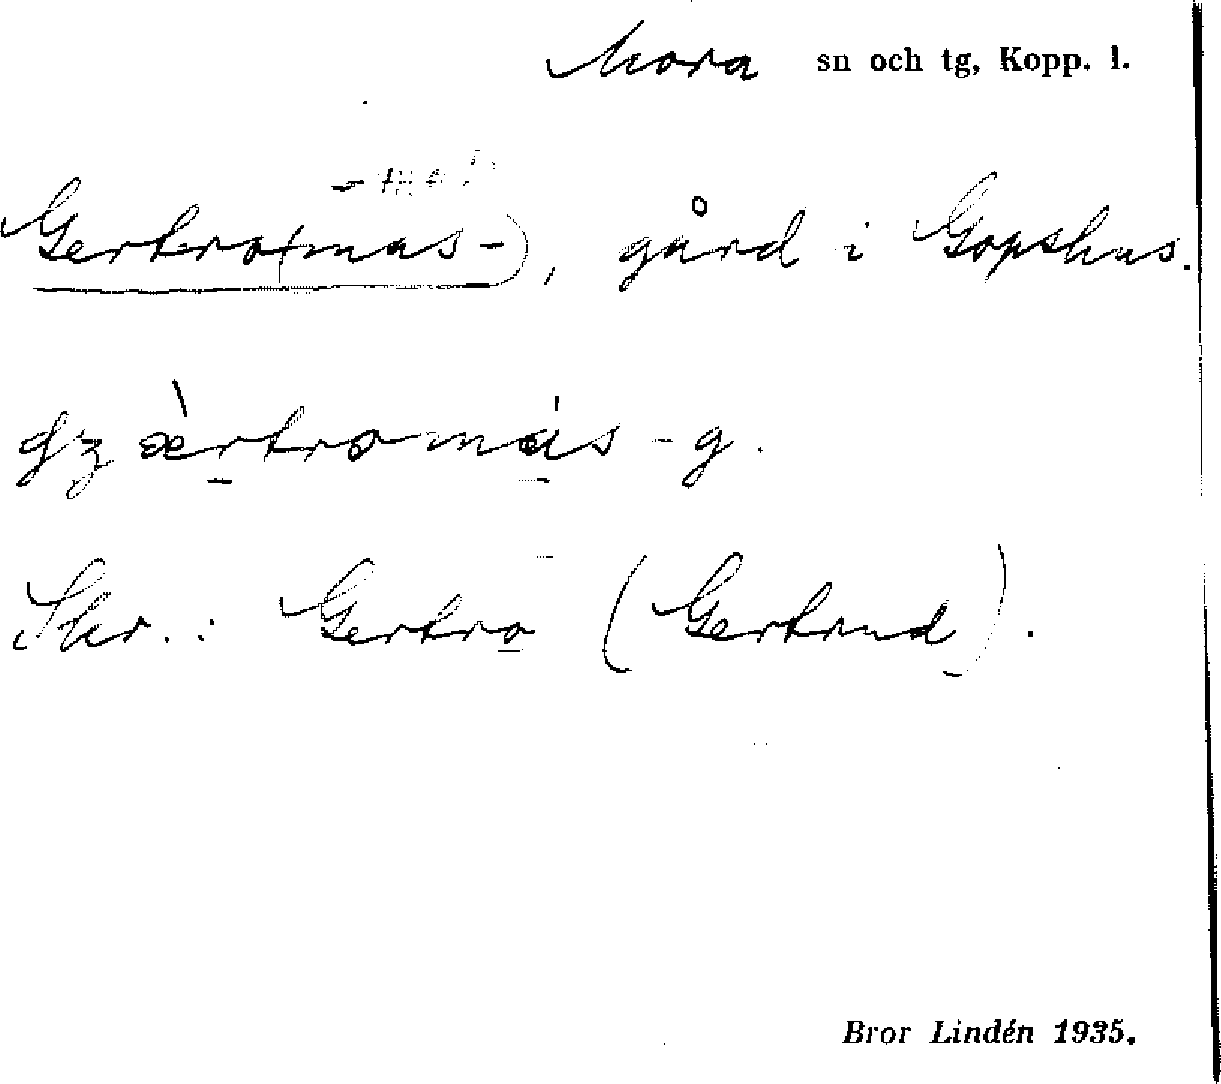 Mora sn och tg, Kopp. l.
Gertromas-), gård i Gopshus.
Skr.: Gertro (Gertrud).
Bror Lindén 1935.